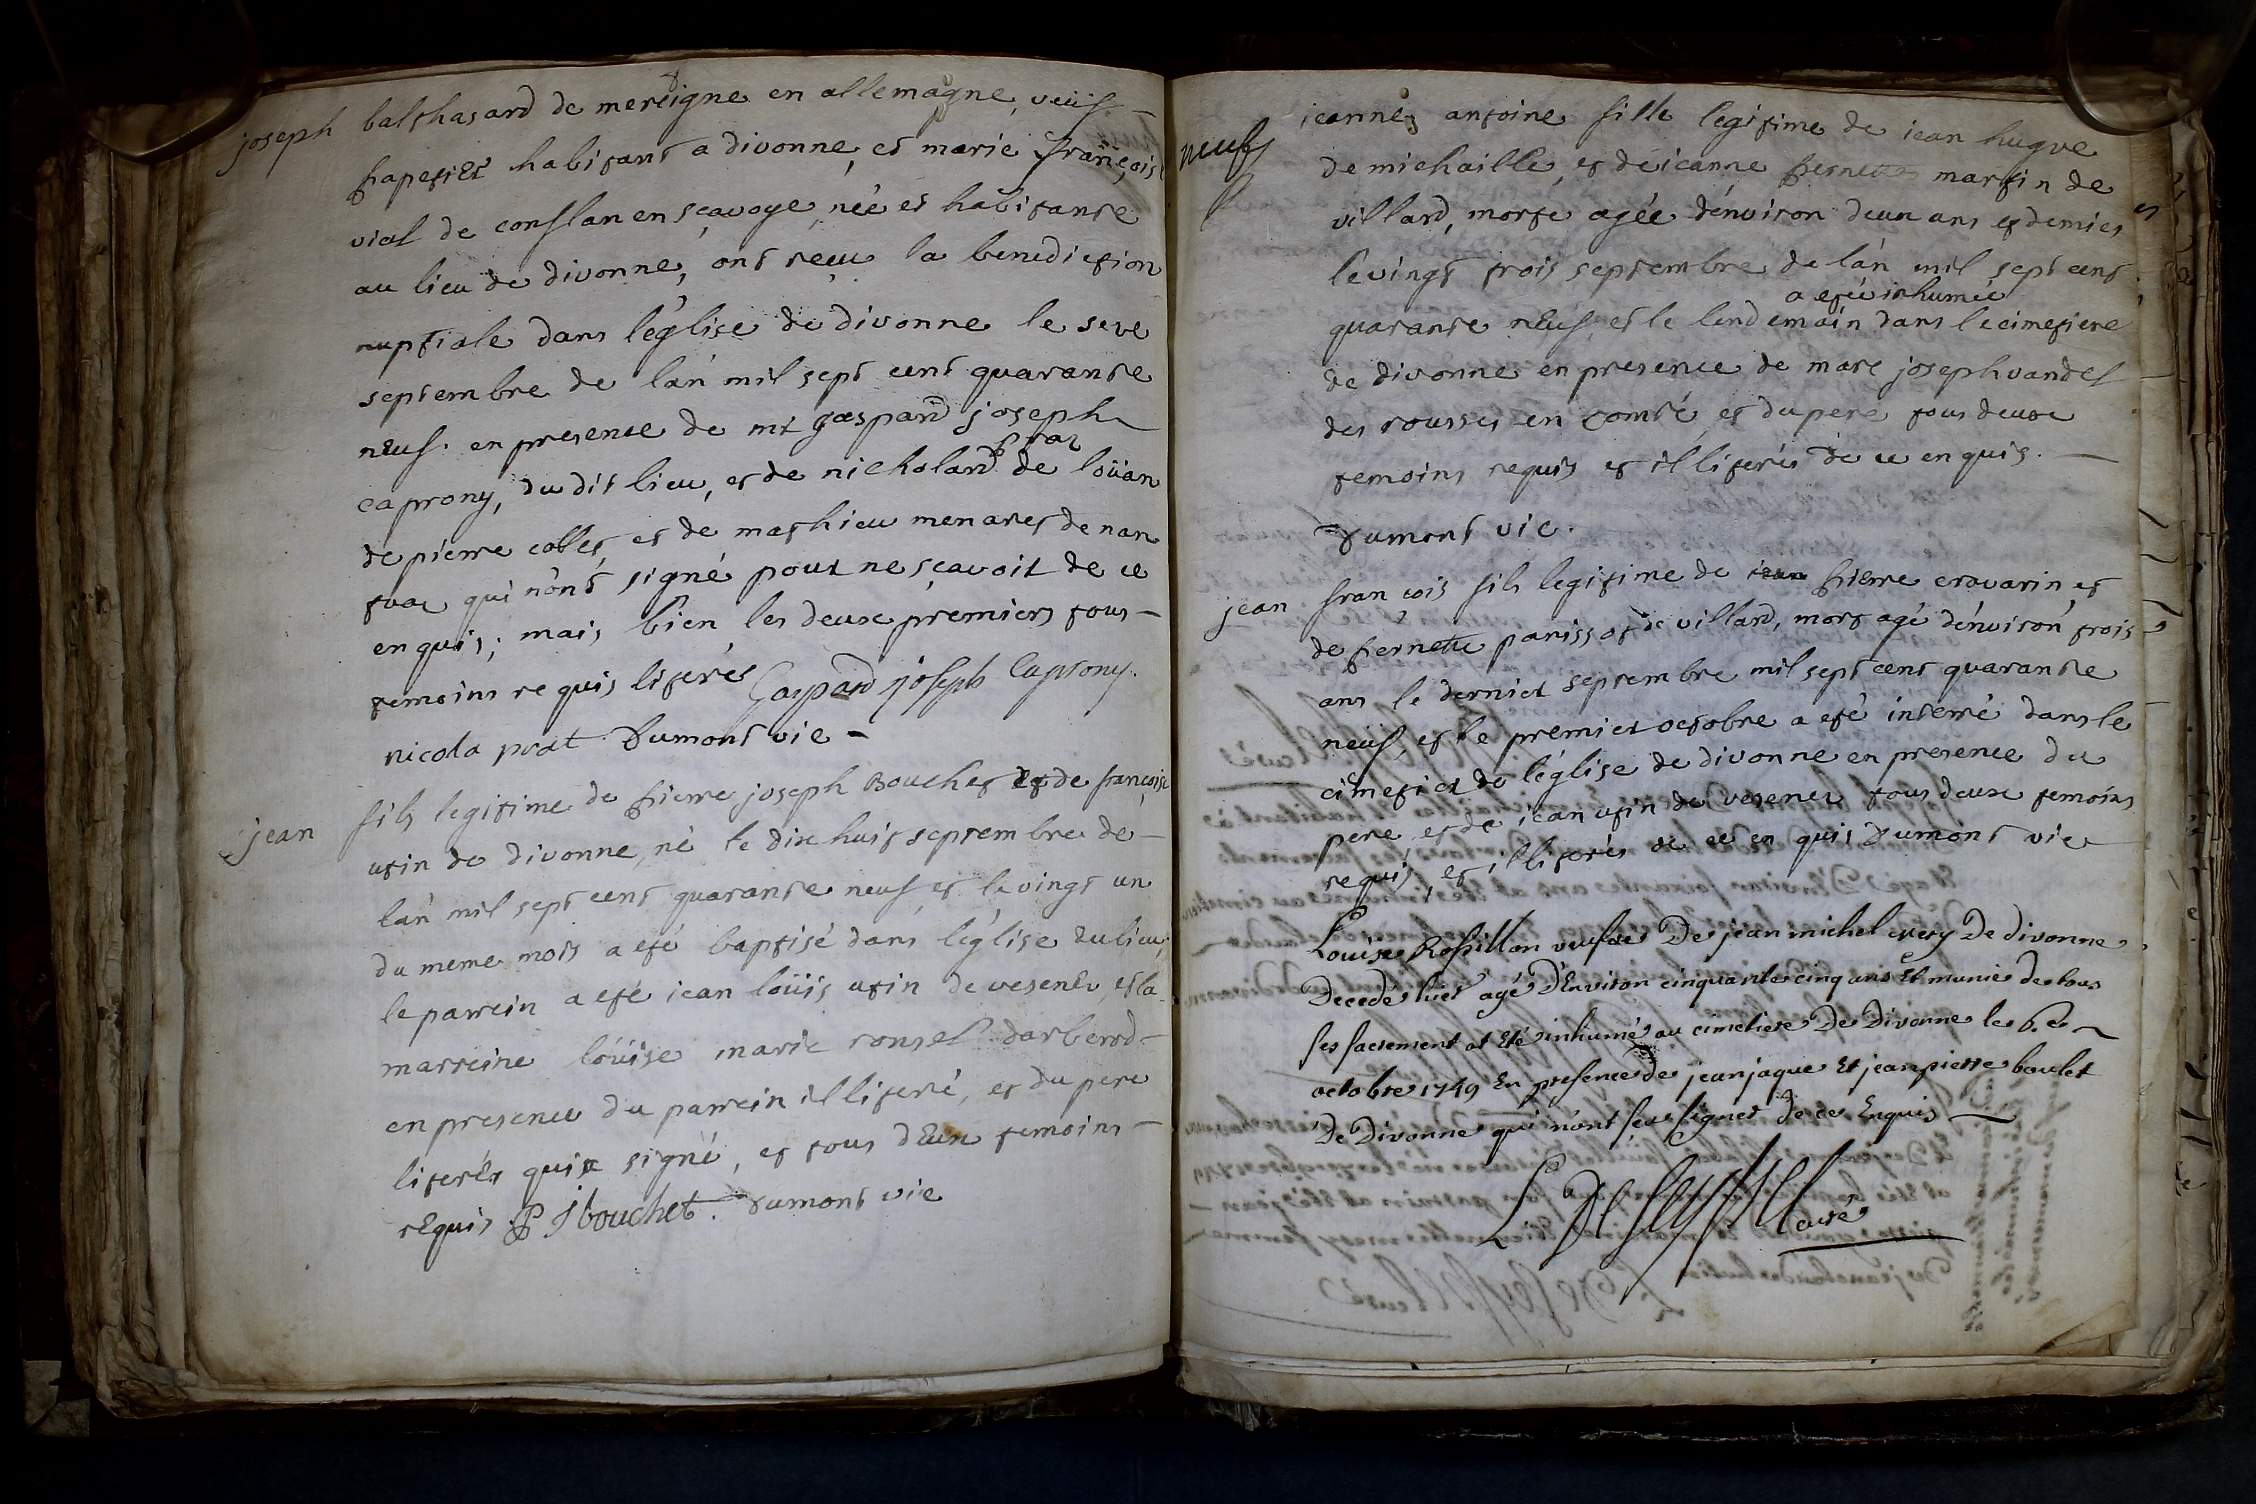 joseph balthasard de mereigne en allemagne, veuf
papetier habitant a divonne, et marie françoise
vial de conflan en sçavoye, née et habitante
au lieu de divonne, ont reçu la benediction
nuptiale dans l'église de divonne le seve
septembre de l'an mil sept cent quarante
neuf. en presence de mr gaspard joseph
caprony, du dit lieu, et de nicholard prat de loüan
de pierre collet, et de mathieu menaret de nan
tua qui n'ont signé pour ne sçavoir de ce
enquis; mais bien les deux premiers tous
temoins requis literés Gaspard joseph Caprony.
nicola prat Dumont vic
jean fils legitime de pierre joseph Bouchet et de françoise
utin de divonne, né le dix huit septembre de
l'an mil sept cent quarante neuf et le vingt un
du meme mois a eté baptisé dans l'église du lieu,
le parrein a eté jean loüis utin de vesenex, et la
marreine loüise marie rouset d'arberod
en presence du parrein illiteré, et du pere
literés qui a signé, et tous deux temoins
requis. P J bouchet. Dumont vic
neuf
jeanne antoine fille legitime de jean hugue
de michaille, et de jeanne pernette martin de
villard, morte agée d'environ deux ans et demies
le vingt trois septembre de l'an mil sept cent
quarante neuf, et le lendemain a eté inhumée dans le cimetiere
de divonne en presence de marc joseph vandel
des rousses en comté, et du pere tous deux
temoins requis et illiterés de ce enquis.
Dumont vic.
jean françois fils legitime de pierre cravarin, et
de pernette panissot de villard, mort agé d'environ trois
ans le dernier septembre mil sept cent quarante
neuf, et le premier octobre a eté interré dans le
cimetier de l'église de divonne en presence du
pere et de jean utin de vesenex tous deux temoins
requis, et illiterés de ce enquis Dumont vic
Louise Rossillon veufve De jean michel every De divonne
Decedé hier agé d'Environ cinquante cinq ans Et munie de tous
ses sacrement at Eté inhumé au cimetiere De Divonne le 6.e
octobre 1749 En presence de jean jaque Et jean pierre boulet
De Divonne qui n'ont sçu signer de ce Enquis
L. De Seyssel curé